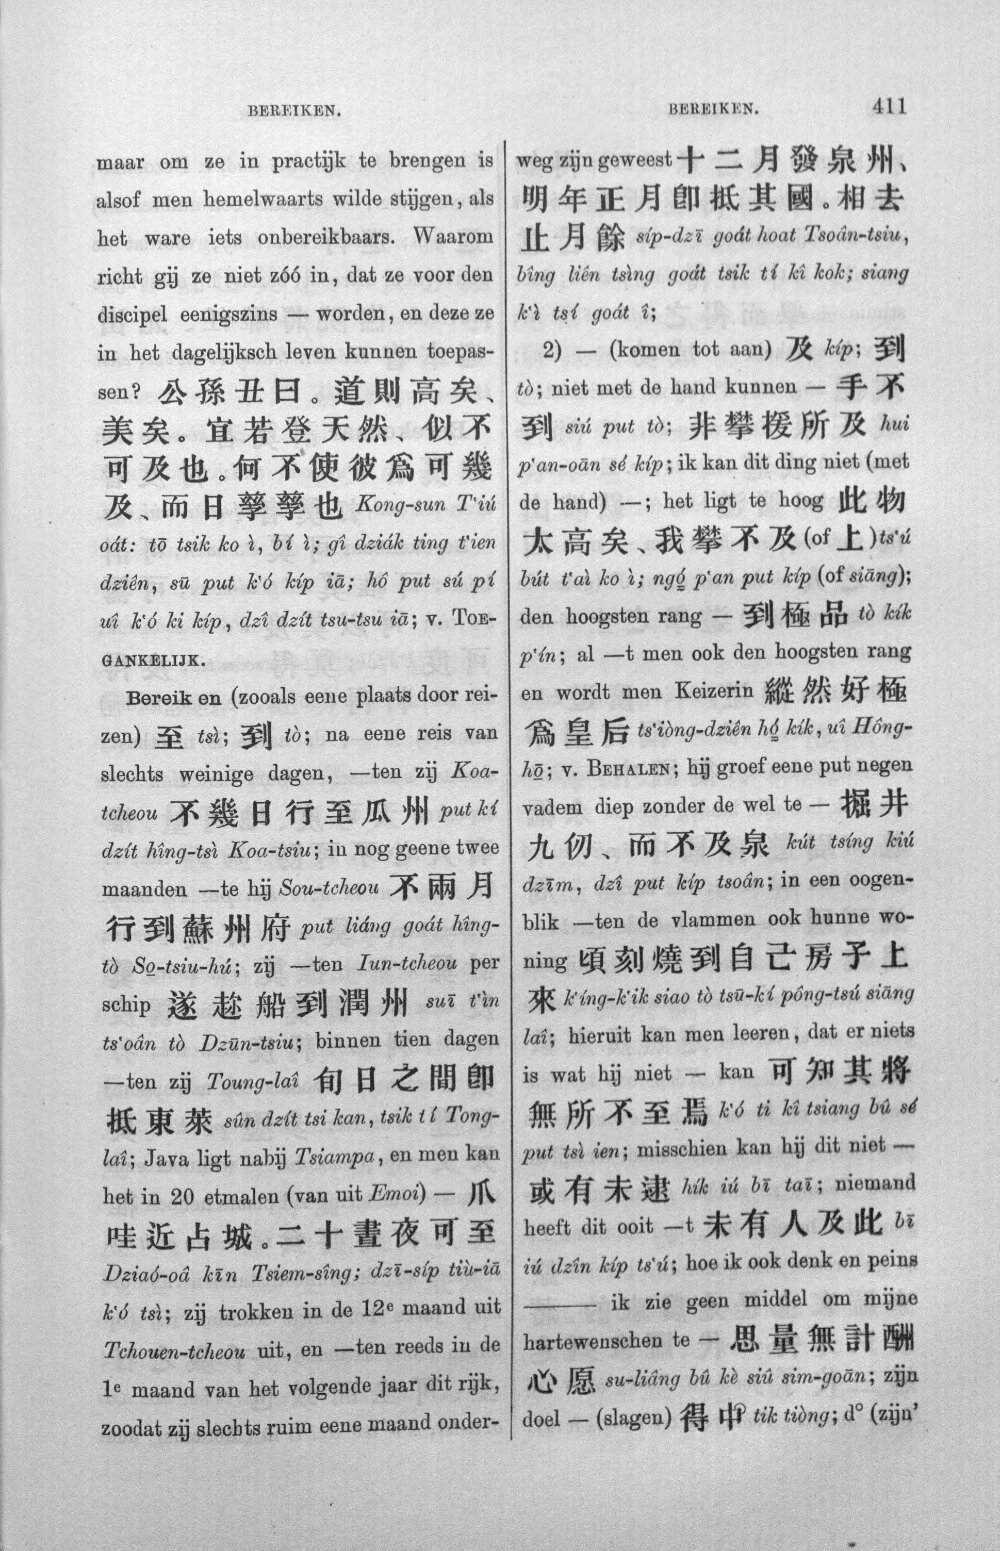 BEREIKEN.
maar om ze in practijk te brengen is
alsof men hemelwaarts wilde stijgen, als
het ware iets onbereikbaars. Waarom
richt gij ze niet zóó in, dat ze voor den
discipel eenigszins — worden, en deze ze
in het dagelijksch leven kunnen toepas-
sen? 公孫丑曰。道則高矣、
美矣。宜若登天然、似不
可及也。何不使彼爲可幾
及、而日孳孳也 Kong-sun T‘iú
oát: tō tsik ko ì, bí ì; gî dziák ting t‘ien
dziên, sū put k‘ó kíp iā; hô put sú pí
uî k‘ó ki kíp, dzî dzít tsu-tsu iā; v. TOE-
GANKELIJK.
Bereik en (zooals eene plaats door rei-
zen) 至 tsì; 到 tò; na eene reis van
slechts weinige dagen, —ten zij Koa-
tcheou 不幾日行至瓜州 put kí
dzít hîng-tsì Koa-tsiu; in nog geene twee
maanden —te hij Sou-tcheou 不兩月
行到蘇州府 put liáng goát hîng-
tò So̱-tsiu-hú; zij —ten Iun-tcheou per
schip 遂趁船到潤州 suī t‘ìn
ts‘oân tò Dzūn-tsiu; binnen tien dagen
—ten zij Toung-laî 旬日之間卽
抵東萊 sûn dzít tsi kan, tsik tí Tong-
laî; Java ligt nabij Tsiampa, en men kan
het in 20 etmalen (van uit Emoi) — 爪
哇近占城。二十晝夜可至
Dziaó-oâ kīn Tsiem-sîng; dzī-síp tiù-iā
k‘ó tsì; zij trokken in de 12e maand uit
Tchouen-tcheou uit, en —ten reeds in de
1e maand van het volgende jaar dit rijk,
zoodat zij slechts ruim eene maand onder-
BEREIKEN. 411
weg zijn geweest 十二月發泉州、
明年正月卽抵其國。相去
止月餘 síp-dzī goát hoat Tsoân-tsiu,
bîng liên tsìng goát tsik tí kî kok; siang
k‘ì tsí goát î;
2) — (komen tot aan) 及 kíp; 到
tò; niet met de hand kunnen — 手不
到 siú put tò; 非攀援所及 hui
p‘an-oān sé kíp; ik kan dit ding niet (met
de hand) —; het ligt te hoog 此物
太高矣、我攀不及 (of 上) ts‘ú
bút t‘aì ko ì; ngó̱ p‘an put kíp (of siāng);
den hoogsten rang — 到極品 tò kík
p‘ín; al —t men ook den hoogsten rang
en wordt men Keizerin 縱然好極
爲皇后 ts‘iòng-dziên hó̱ kík, uî Hông-
hō̱; v. BEHALEN; hij groef eene put negen
vadem diep zonder de wel te — 掘井
九仞、而不及泉 kút tsíng kiú
dzīm, dzî put kíp tsoân; in een oogen-
blik —ten de vlammen ook hunne wo-
ning 頃刻燒到自己房子上
來 k‘íng-k‘ik siao tò tsū-kí pông-tsú siāng
laî; hieruit kan men leeren, dat er niets
is wat hij niet — kan 可知其將
無所不至焉 k‘ó ti kî tsiang bû sé
put tsì ien; misschien kan hij dit niet —
或有未逮 hík iú bī taī; niemand
heeft dit ooit —t 未有人及此 bī
iú dzîn kíp ts‘ú; hoe ik ook denk en peins
——— ik zie geen middel om mijne
hartewenschen te — 思量無計酬
心愿 su-liâng bû kè siû sim-goān; zijn
doel — (slagen) 得中 tik tiòng; d° (zijn’